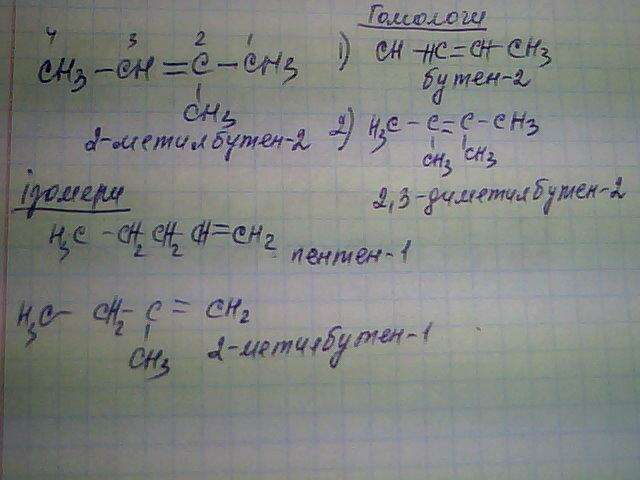 4 3 2 1
CH3 – CH = C – CH3
CH3
2-метилбутен-2
Гомологи
1) CH – HC = CH – CH3
бутен-2
2) H3C – C = C – CH3
CH3 CH3
2,3-диметилбутен-2
Ізомери
H3C – CH2 CH2 CH = CH2
пентен-1
H3C – CH2 – C = CH2
CH3
2-метилбутен-1